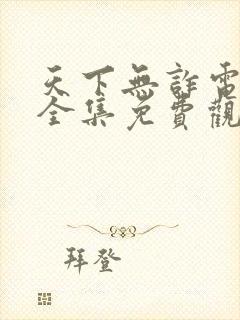 天下無詐電
全集免費觀
拜登